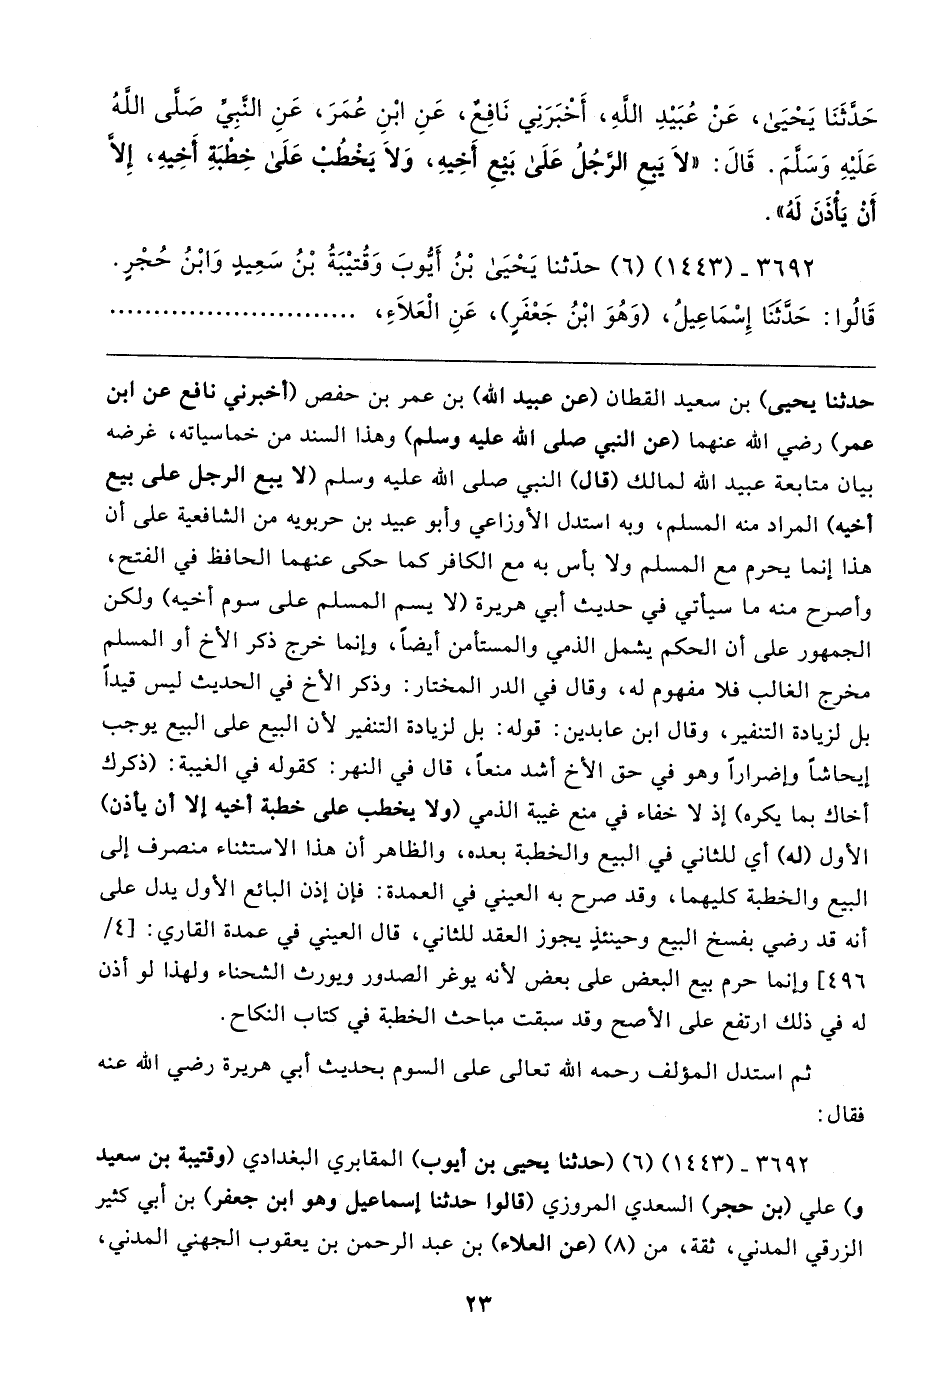 حَدَّثَنَا يَحْيَىٰ، عَنْ عُبَيْدِ اللَّهِ، أَخْبَرَنِي نَافِعٌ، عَنِ ابْنِ عُمَرَ، عَنِ النَّبِيِّ صَلَّى اللَّهُ
عَلَيْهِ وَسَلَّمَ. قَالَ: «لاَ يَبِعِ الرَّجُلُ عَلَىٰ بَيْعِ أَخِيهِ، وَلاَ يَخْطُبْ عَلَىٰ خِطْبَةِ أَخِيهِ، إِلاَّ
أَنْ يَأْذَنَ لَهُ».
٣٦٩٢ ـ (١٤٤٣) (٦) حدّثنا يَحْيَىٰ بْنُ أَيُّوبَ وَقُتَيْبَةُ بْنُ سَعِيدٍ وَابْنُ حُجْرٍ.
قَالُوا: حَدَّثَنَا إِسْمَاعِيلُ، (وَهُوَ ابْنُ جَعْفَرٍ)، عَنِ الْعَلاَءِ، ............................
حدثنا يحيى) بن سعيد القطان (عن عبيد الله) بن عمر بن حفص (أخبرني نافع عن ابن
عمر) رضي الله عنهما (عن النبي صلى الله عليه وسلم) وهذا السند من خماسياته، غرضه
بيان متابعة عبيد الله لمالك (قال) النبي صلى الله عليه وسلم (لا يبع الرجل على بيع
أخيه) المراد منه المسلم، وبه استدل الأوزاعي وأبو عبيد بن حربويه من الشافعية على أن
هذا إنما يحرم مع المسلم ولا بأس به مع الكافر كما حكى عنهما الحافظ في الفتح،
وأصرح منه ما سيأتي في حديث أبي هريرة (لا يسم المسلم على سوم أخيه) ولكن
الجمهور على أن الحكم يشمل الذمي والمستأمن أيضاً، وإنما خرج ذكر الأخ أو المسلم
مخرج الغالب فلا مفهوم له، وقال في الدر المختار: وذكر الأخ في الحديث ليس قيداً
بل لزيادة التنفير، وقال ابن عابدين: قوله: بل لزيادة التنفير لأن البيع على البيع يوجب
إيحاشاً وإضراراً وهو في حق الأخ أشد منعاً، قال في النهر: كقوله في الغيبة: (ذكرك
أخاك بما يكره) إذ لا خفاء في منع غيبة الذمي (ولا يخطب على خطبة أخيه إلا أن يأذن)
الأول (له) أي للثاني في البيع والخطبة بعده، والظاهر أن هذا الاستثناء منصرف إلى
البيع والخطبة كليهما، وقد صرح به العيني في العمدة: فإن إذن البائع الأول يدل على
أنه قد رضي بفسخ البيع وحينئذٍ يجوز العقد للثاني، قال العيني في عمدة القاري: [٤/
٤٩٦] وإنما حرم بيع البعض على بعض لأنه يوغر الصدور ويورث الشحناء ولهذا لو أذن
له في ذلك ارتفع على الأصح وقد سبقت مباحث الخطبة في كتاب النكاح.
ثم استدل المؤلف رحمه الله تعالى على السوم بحديث أبي هريرة رضي الله عنه
فقال:
٣٦٩٢ ـ (١٤٤٣) (٦) (حدثنا يحيى بن أيوب) المقابري البغدادي (وقتيبة بن سعيد
و) علي (بن حجر) السعدي المروزي (قالوا حدثنا إسماعيل وهو ابن جعفر) بن أبي كثير
الزرقي المدني، ثقة، من (٨) (عن العلاء) بن عبد الرحمن بن يعقوب الجهني المدني،
٢٣